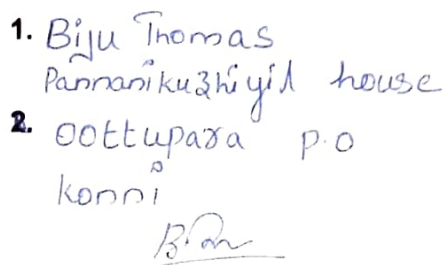 1. Biju Thomas
Pannanikuzhiyil house
2. oottupara P.O
Konni